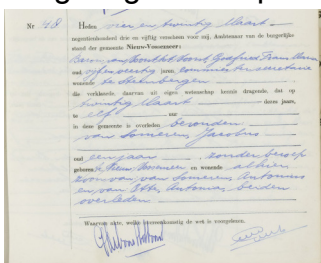 Nr 48 Heden vier en twintig Maart
negentienhonderd drie en vijftig verscheen voor mij, Ambtenaar van de burgerlijke
stand der gemeente Nieuw-Vossemeer:
Baron van Frans
oud jaren,
wonende te Steenbergen
die verklaarde, daarvan uit eigen wetenschap kennis dragende, dat op
twintig Maart dezes jaars,
te elf ure
in deze gemeente is overleden bevonden
van Someren, Jacobus
oud een jaar zonder beroep
geboren te Nieuw Vossemeer en wonende alhier
zoon van van Someren, Antonius
en van Antonia, beiden
overleden.
Waarvan akte, welke overeenkomstig de wet is voorgelezen.